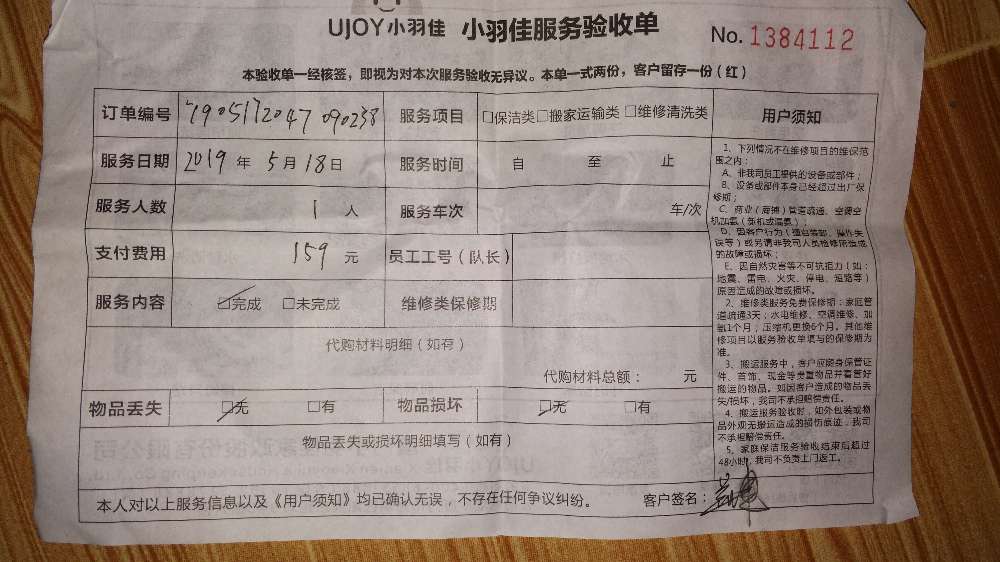 UJOY小羽佳 小羽佳服务验收单 No. 1384112
本验收单一经核签，即视为对本次服务验收无异议。本单一式两份，客户留存一份（红）
订单编号 7905172047090238 服务项目 □保洁类□搬家运输类□维修清洗类 用户须知
服务日期 2019年5月18日 服务时间 自 至 止
服务人数 1人 服务车次 车/次
支付费用 159元 员工工号（队长）
服务内容 ☑完成 □未完成 维修类保修期
代购材料明细（如存）
代购材料总额： 元
物品丢失 ☑无 □有 物品损坏 ☑无 □有
物品丢失或损坏明细填写（如有）
本人对以上服务信息以及《用户须知》均已确认无误，不存在任何争议纠纷。 客户签名：
1、下列情况不在维修项目的维保范
围之内：
A、非我司员工提供的设备或部件；
B、设备或部件本身已经超过出厂保
修期；
C、商业（商铺）管道疏通、空调空
机加氟（新机或漏氟）；
D、因客户行为（擅自装卸、操作失
误等）或另请非我司人员检修而造成
的故障或损坏；
E、因自然灾害等不可抗拒力（如：
地震、雷电、火灾、停电、短路等）
原因造成的故障或损坏。
2、维修类服务免费保修期：家庭管
道疏通3天；水电维修、空调维修、加
氟1个月；压缩机更换6个月。其他维
修项目以服务验收单填写的保修期为
准。
3、搬运服务中，客户应随身保管证
件、首饰、现金等贵重物品并看管好
搬运的物品。如因客户造成的物品丢
失/损坏，我司不承担赔偿责任。
4、搬运服务验收时，如外包装或物
品外观无搬运造成的损伤痕迹，我司
不承担赔偿责任。
5、家庭保洁服务验收结束后超过
48小时，我司不负责上门返工。